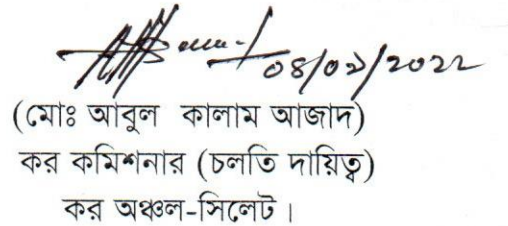 ০৪/০১/২০২২
(মোঃ আবুল কালাম আজাদ)
কর কমিশনার (চলতি দায়িত্ব)
কর অঞ্চল-সিলেট।